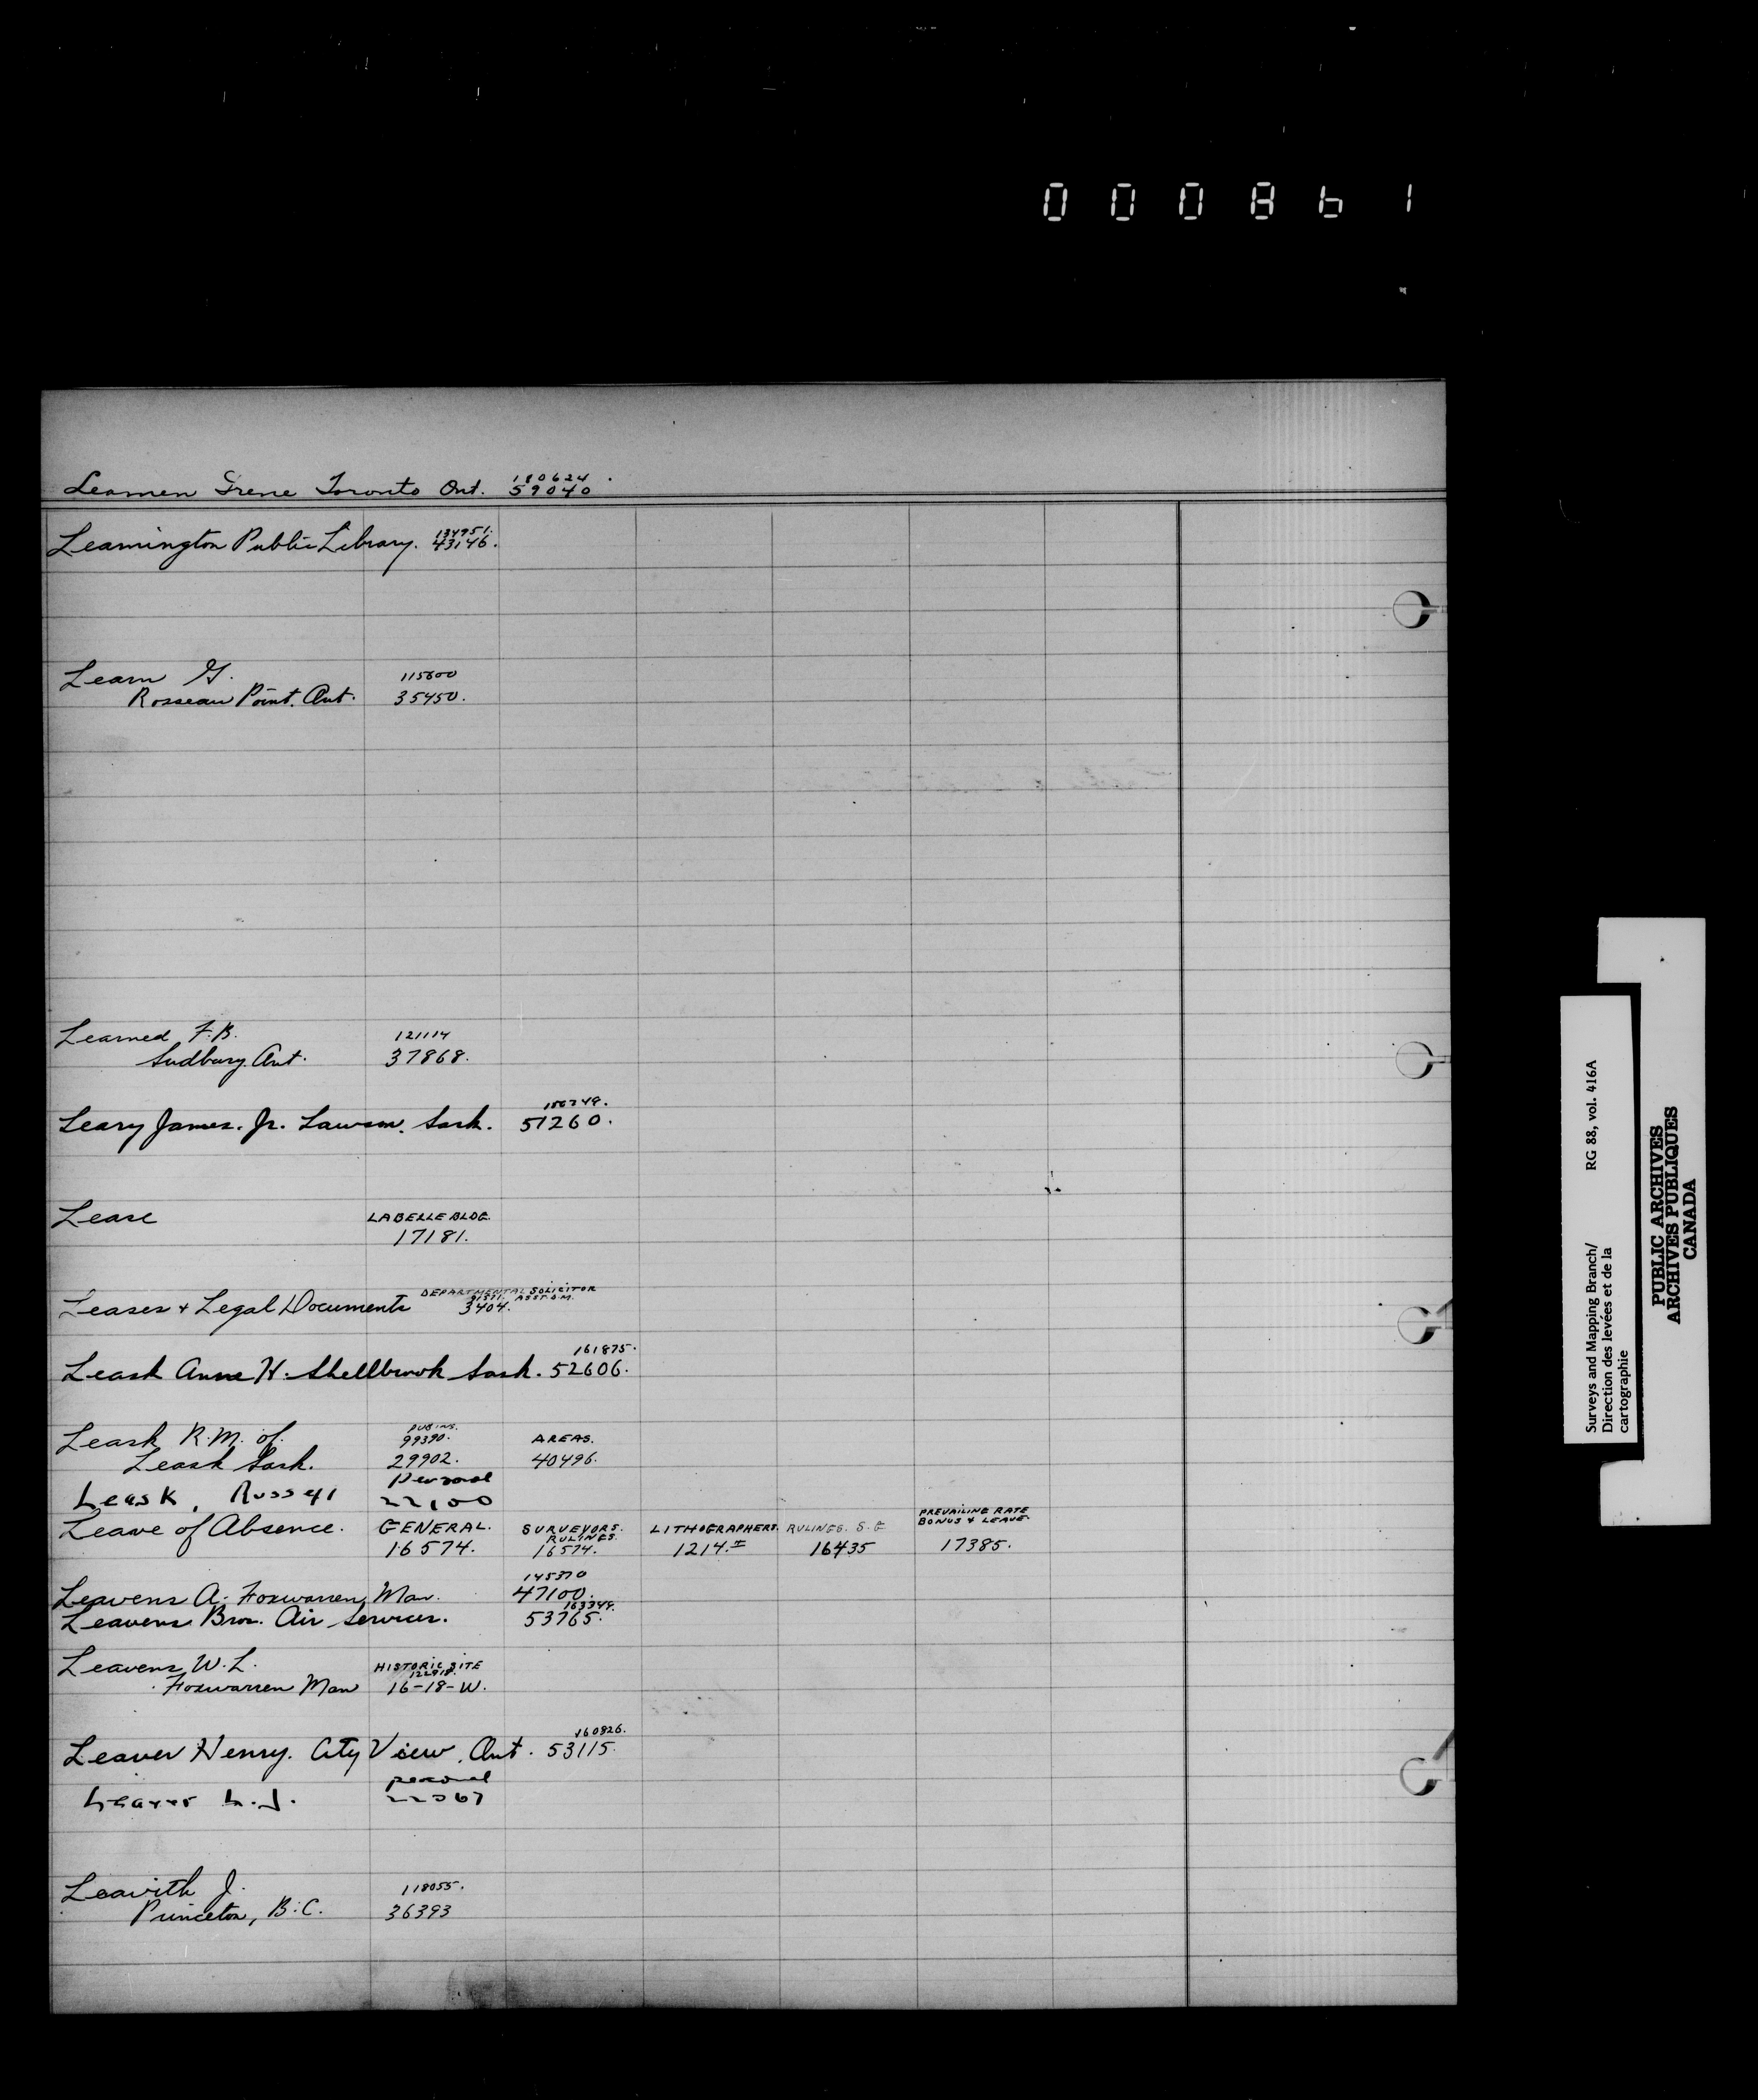 000861
Leamen Irene Toronto Ont. 180624
59040
Leamington Public Library. 134951.
43146.
Learn G. 115600
Rosseau Point. Ont. 35450.
Learned F.B. 121114
Sudbury. Ont. 37868.
156749.
Leary James. Jr. Lawson. Sask. 51260.
Lease LABELLE BLDG.
17181.
DEPARTMENTAL SOLICITOR
ASST. D.M.
Leases & Legal Documents 3404.
161875.
Leask Anne H. Shellbrook Sask. 52606.
Leask R.M. of. 99390. AREAS.
Leask Sask. 29902. 40496.
Personal
Leask, Russel 22100
PREVAILING RATE
BONUS & LEAVE
Leave of Absence. GENERAL. SURVEYORS. RULINGS. LITHOGRAPHERS. RULINGS. S.G
16574. 16574. 1214. 16435 17385.
145370
Leavens A. Foxwarren, Man. 47100.
163344.
Leavens Bros. Air Services. 53765.
Leavens W.L. HISTORIC SITE
122918.
Foxwarren Man 16-18-W.
160826.
Leaver Henry. City View, Ont. 53115.
personal
Leaver L.J. 22067
Leavith J. 118055.
Princeton, B.C. 36393
Surveys and Mapping Branch/ RG 88, vol. 416A
Direction des levées et de la
cartographie
PUBLIC ARCHIVES
ARCHIVES PUBLIQUES
CANADA